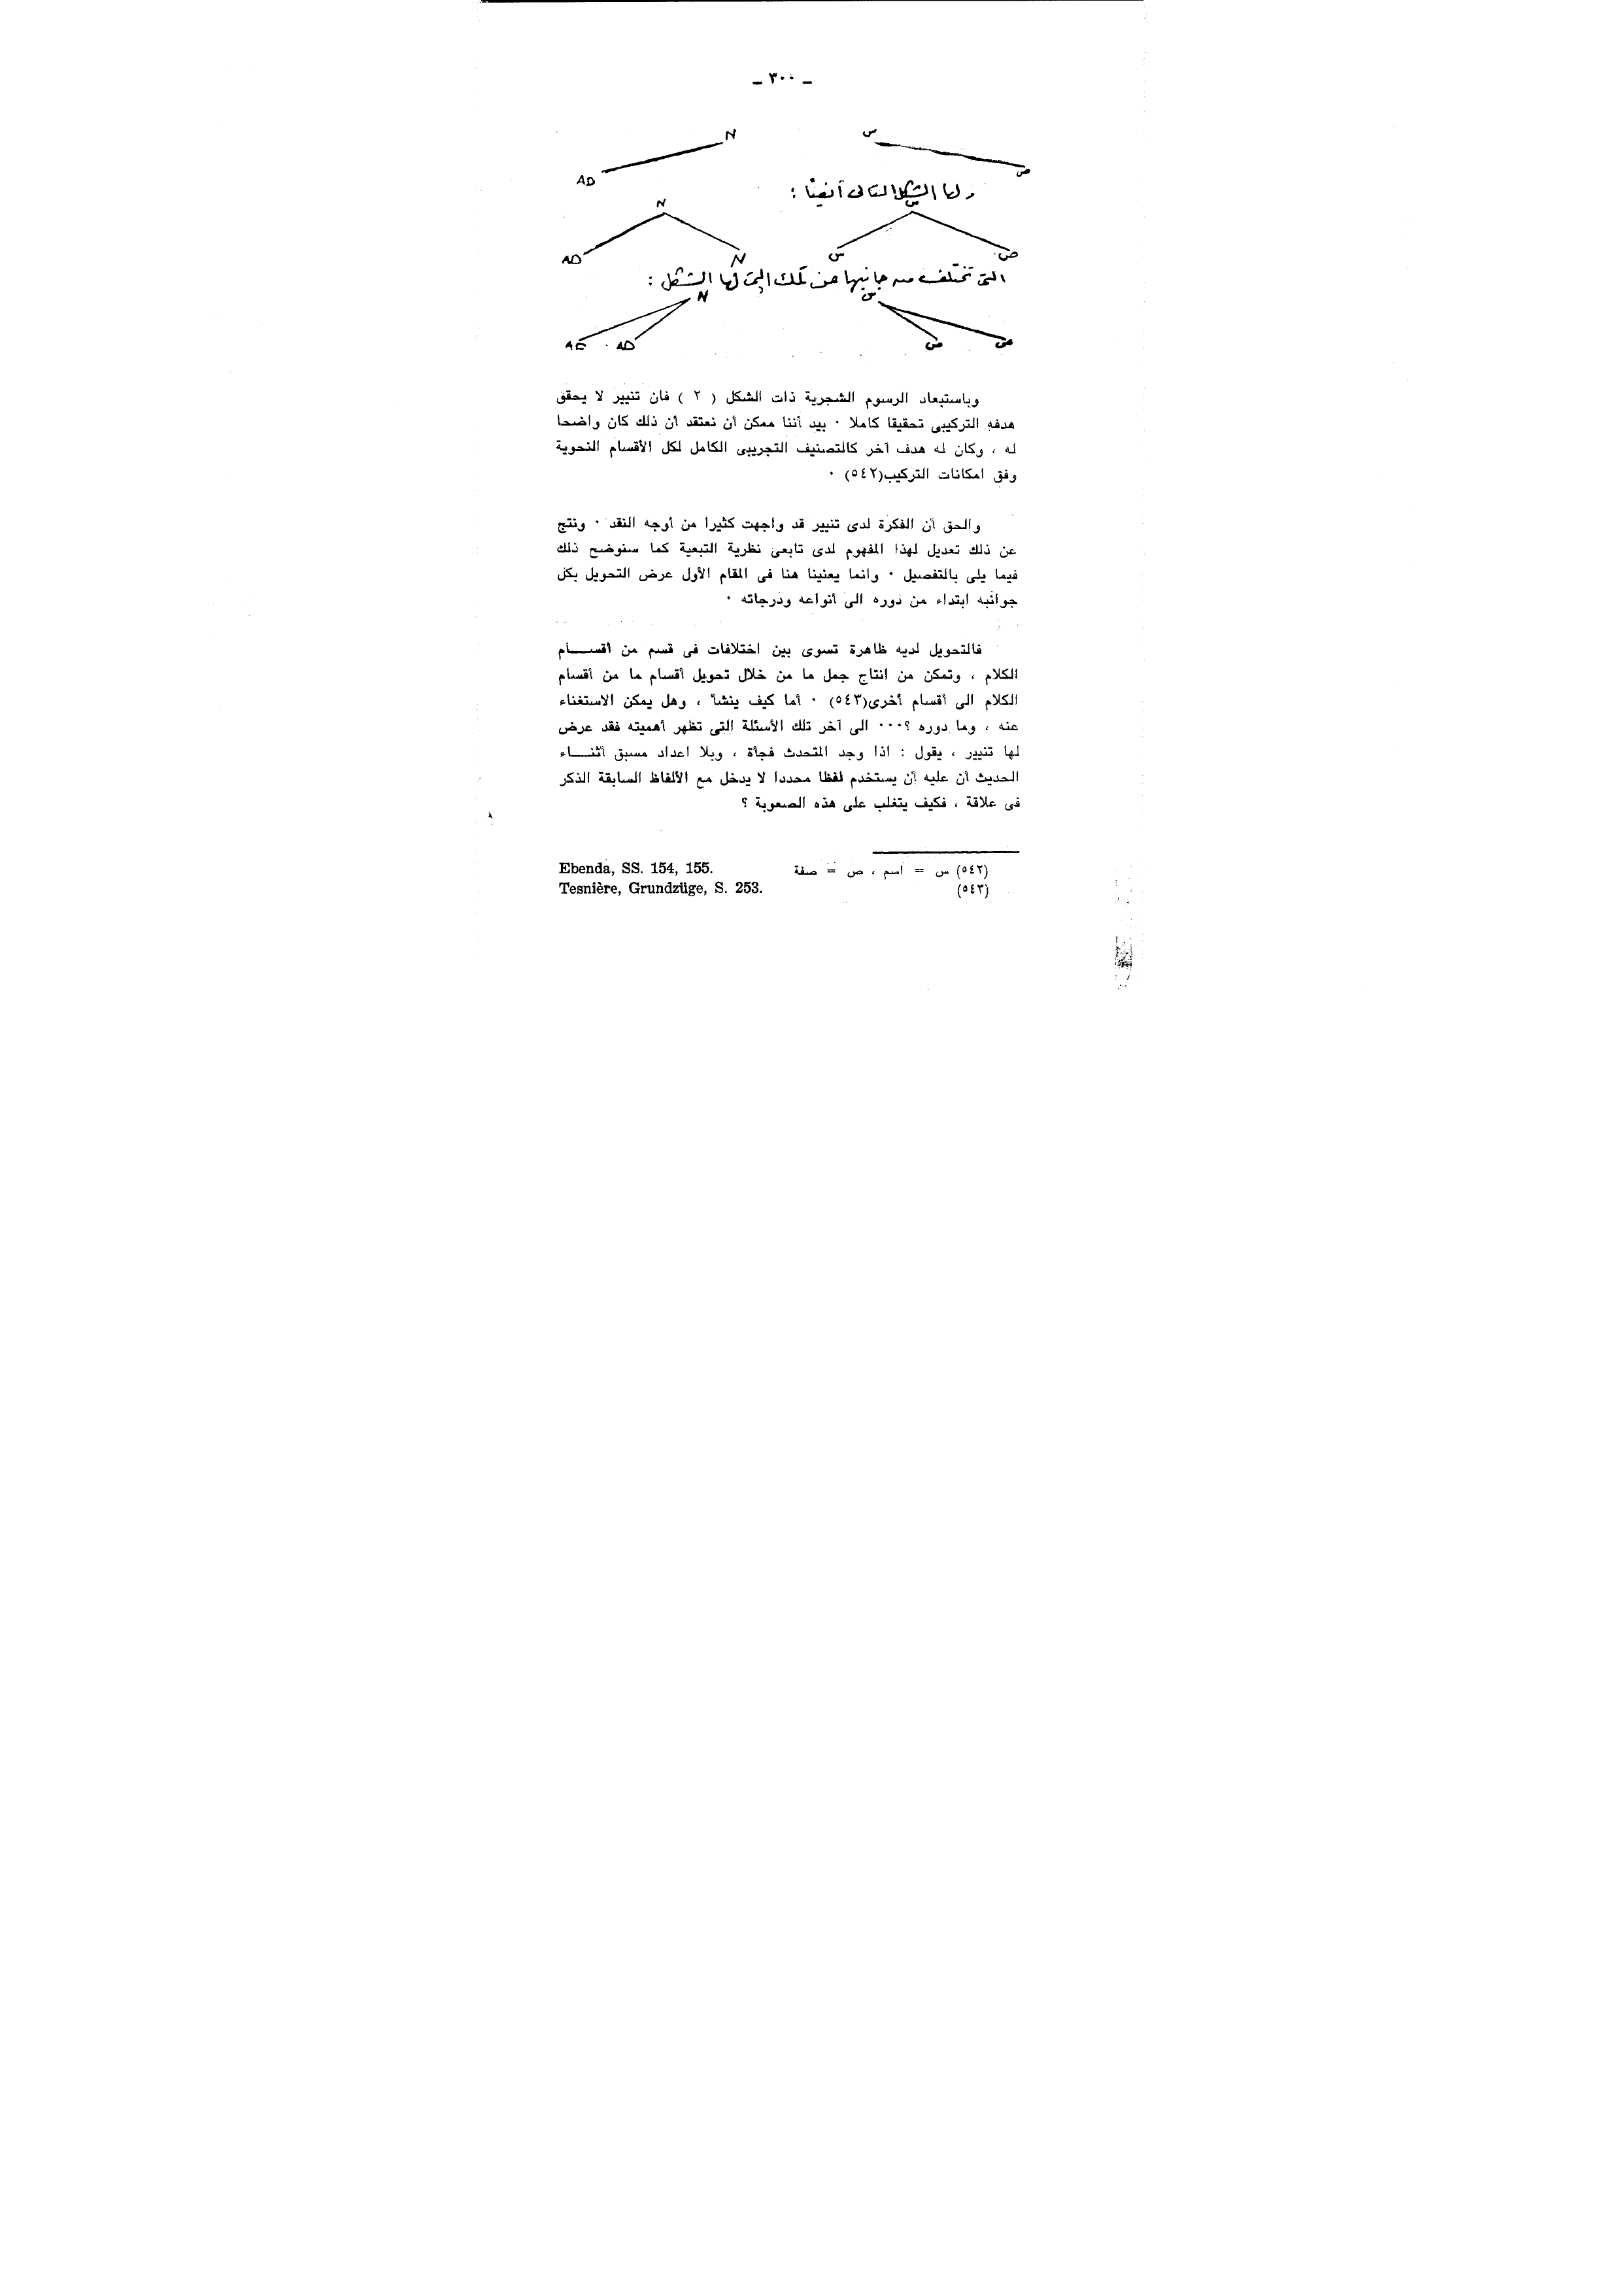 ـ ٣٠٠ ـ
س N
ص AD
ولها الشكل التالى أيضًا :
س N
ص س N AD
التى تختلف من جانبها عن تلك التى لها الشكل :
س N
ص ص AD AE
وباستبعاد الرسوم الشجرية ذات الشكل ( ٢ ) فان تنيير لا يحقق
هدفه التركيبى تحقيقا كاملا ٠ بيد أننا ممكن أن نعتقد أن ذلك كان واضحا
له ، وكان له هدف آخر كالتصنيف التجريبى الكامل لكل الأقسام النحوية
وفق امكانات التركيب(٥٤٢) ٠
والحق أن الفكرة لدى تنيير قد واجهت كثيرا من أوجه النقد ٠ ونتج
عن ذلك تعديل لهذا المفهوم لدى تابعى نظرية التبعية كما سنوضح ذلك
فيما يلى بالتفصيل ٠ وانما يعنينا هنا فى المقام الأول عرض التحويل بكل
جوانبه ابتداء من دوره الى أنواعه ودرجاته ٠
فالتحويل لديه ظاهرة تسوى بين اختلافات فى قسم من أقســـام
الكلام ، وتمكن من انتاج جمل ما من خلال تحويل أقسام ما من أقسام
الكلام الى أقسام أخرى(٥٤٣) ٠ أما كيف ينشأ ، وهل يمكن الاستغناء
عنه ، وما دوره ؟٠٠٠ الى آخر تلك الأسئلة التى تظهر أهميته فقد عرض
لها تنيير ، يقول : اذا وجد المتحدث فجأة ، وبلا اعداد مسبق أثنـــاء
الحديث أن عليه أن يستخدم لفظا محددا لا يدخل مع الألفاظ السابقة الذكر
فى علاقة ، فكيف يتغلب على هذه الصعوبة ؟
(٥٤٢) س = اسم ، ص = صفة Ebenda, SS. 154, 155.
(٥٤٣) Tesnière, Grundzüge, S. 253.